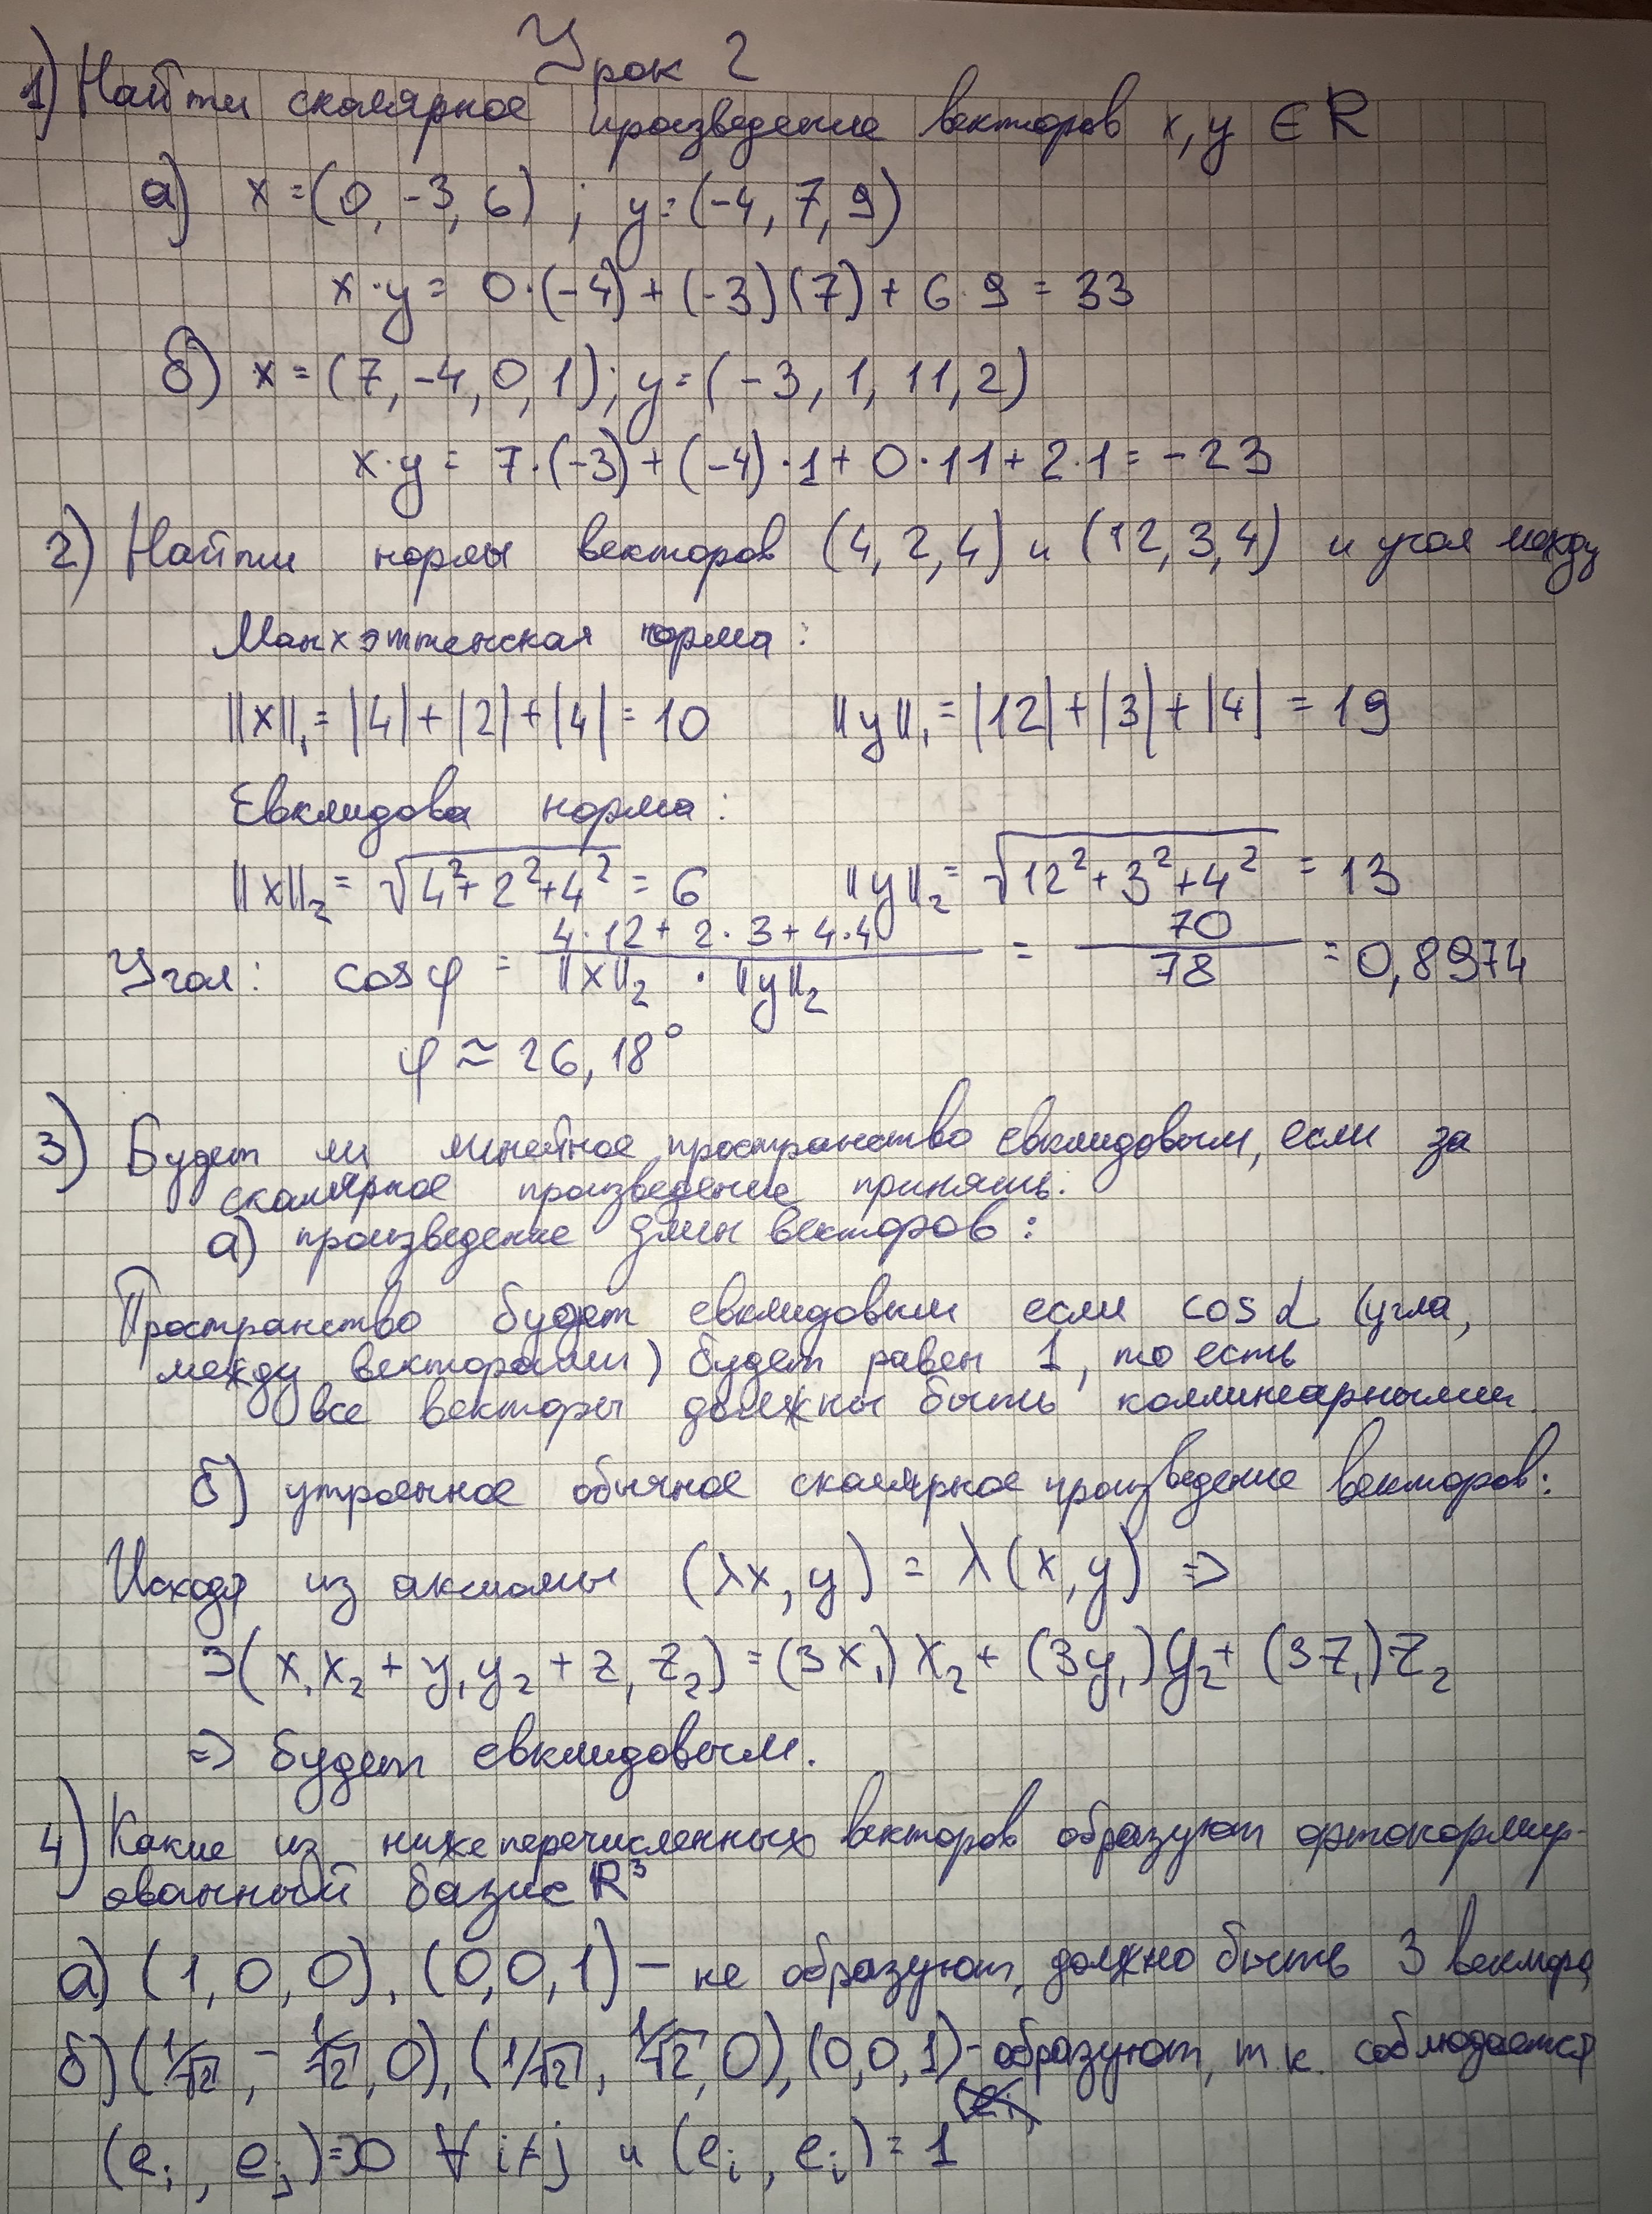 Урок 2
1) Найти скалярное произведение векторов x, y ∈ R
а) x = (0, -3, 6) ; y = (-4, 7, 9)
x·y = 0·(-4) + (-3)(7) + 6·9 = 33
б) x = (7, -4, 0, 1); y = (-3, 1, 11, 2)
x·y = 7·(-3) + (-4)·1 + 0·11 + 2·1 = -23
2) Найти нормы векторов (4, 2, 4) и (12, 3, 4) и угол между
Манхэттенская норма:
||x||₁ = |4| + |2| + |4| = 10 ||y||₁ = |12| + |3| + |4| = 19
Евклидова норма:
||x||₂ = √(4² + 2² + 4²) = 6 ||y||₂ = √(12² + 3² + 4²) = 13
Угол: cos φ = (4·12 + 2·3 + 4·4) / (||x||₂ · ||y||₂) = 70/78 = 0,8974
φ ≈ 26,18°
3) Будет ли линейное пространство евклидовым, если за
скалярное произведение принять:
а) произведение длин векторов:
Пространство будет евклидовым если cos α (угла,
между векторами) будет равен 1, то есть
все векторы должны быть коллинеарными.
б) утроенное обычное скалярное произведение векторов:
Исходя из аксиомы (λx, y) = λ(x, y) =>
3(x₁x₂ + y₁y₂ + z₁z₂) = (3x₁)x₂ + (3y₁)y₂ + (3z₁)·z₂
=> будет евклидовым.
4) Какие из нижеперечисленных векторов образуют ортонормир-
ованный базис R³
а) (1, 0, 0), (0, 0, 1) - не образуют, должно быть 3 вектора
б) (1/√2, -1/√2, 0), (1/√2, 1/√2, 0), (0, 0, 1) - образуют, т к. соблюдается
(eᵢ, eⱼ) = 0 ∀ i≠j и (eᵢ, eᵢ) = 1